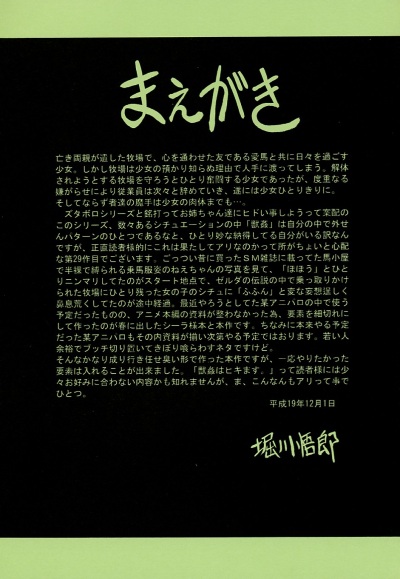 まえがき
亡き両親が遺した牧場で、心を通わせた友である愛馬と共に日々を過ごす
少女。しかし牧場は少女の預かり知らぬ理由で人手に渡ってしまう。解体
されようとする牧場を守ろうとひとり奮闘する少女であったが、度重なる
嫌がらせにより従業員は次々と辞めていき、遂には少女ひとりきりに。
そしてならず者達の魔手は少女の肉体までも…。
ズタボロシリーズと銘打ってお姉ちゃん達にヒドい事しようって案配の
このシリーズ、数々あるシチュエーションの中「獣姦」は自分の中で外せ
んパターンのひとつであるなと、ひとり妙な納得してる自分がいる訳なん
ですが、正直読者様的にこれは果たしてアリなのかって所がちょいと心配
な第29作目でございます。ごっつい昔に買ったＳＭ雑誌に載ってた馬小屋
で半裸で縛られる乗馬服姿のねえちゃんの写真を見て、「ほほう」とひと
りニンマリしてたのがスタート地点で、ゼルダの伝説の中で乗っ取りかけ
られた牧場にひとり残った女の子のシチュに「ふふん」と変な妄想逞しく
鼻息荒くしてたのが途中経過。最近やろうとしてた某アニパロの中で使う
予定だったものの、アニメ本編の資料が整わなかった為、要素を細切れに
して作ったのが春に出したシーラ様本と本作です。ちなみに本来やる予定
だった某アニパロもその内資料が揃い次第やる予定ではおります。若い人
余裕でブッチ切り置いてきぼり喰らわすネタですけど。
そんなかなり成り行き任せ臭い形で作った本作ですが、一応やりたかった
要素は入れることが出来ました。「獣姦はヒキます。」って読者様には少
々お好みに合わない内容かも知れませんが、ま、こんなんもアリって事で
ひとつ。
平成19年12月1日
堀川悟郎